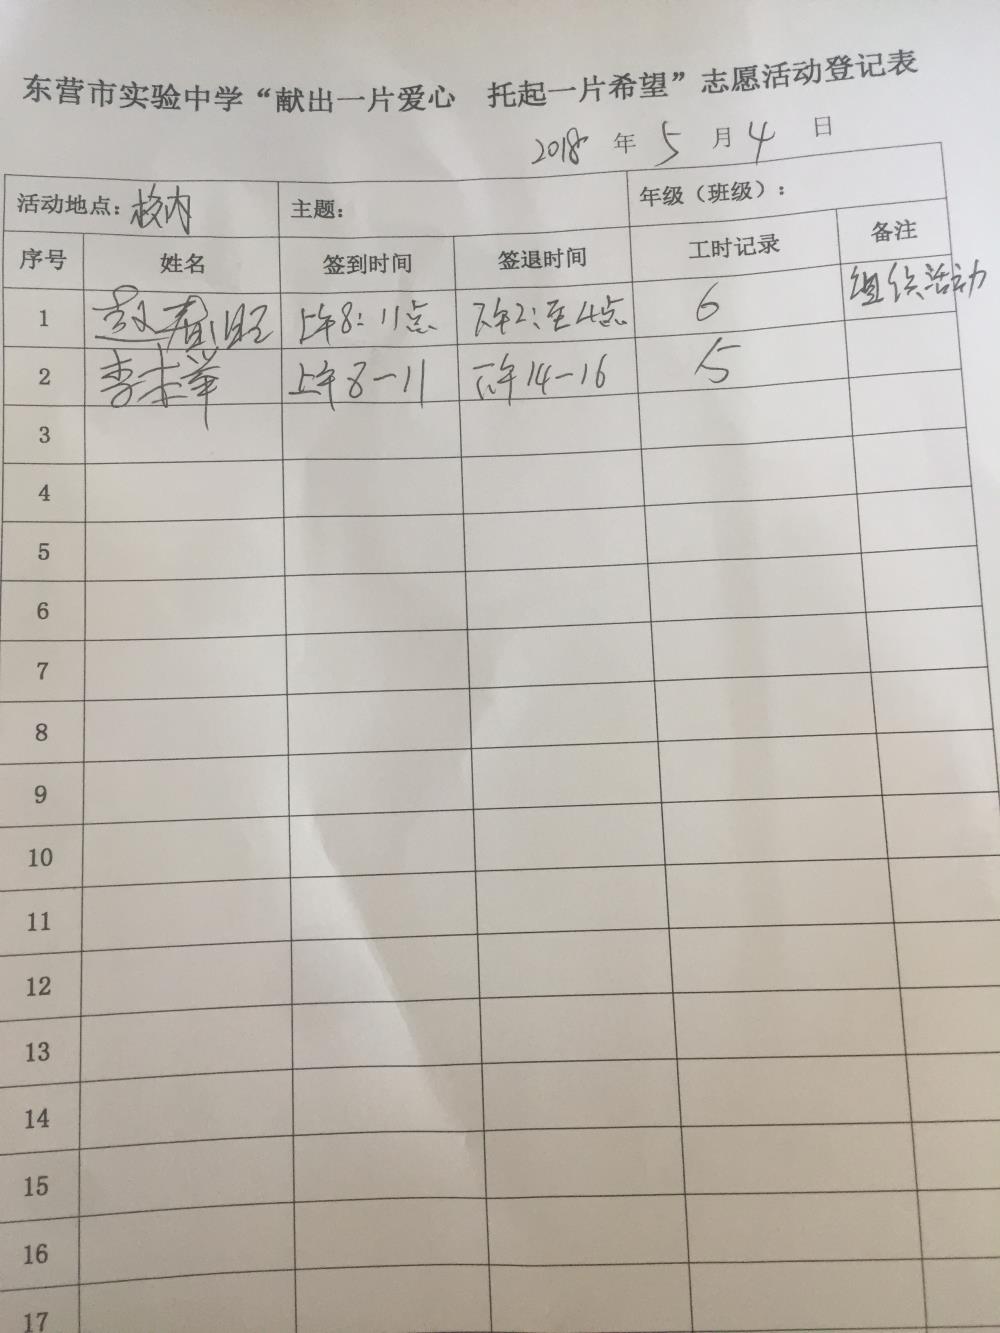 东营市实验中学“献出一片爱心 托起一片希望”志愿活动登记表
2018 年 5 月 4 日
活动地点：校内 主题： 年级（班级）：
序号 姓名 签到时间 签退时间 工时记录 备注
1 上午8：11点 下午2：至4点 6 组织活动
2 李 上午8－11 下午14－16 5
3
4
5
6
7
8
9
10
11
12
13
14
15
16
17